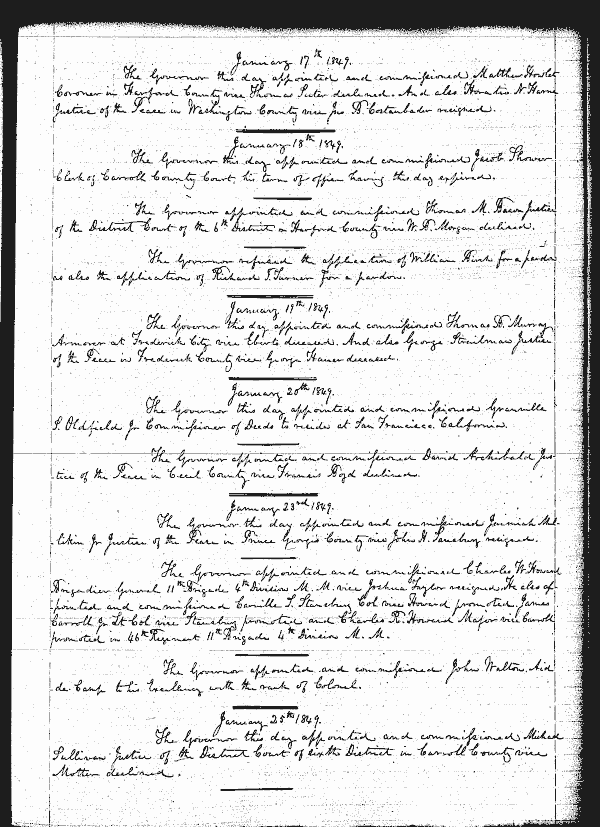 January 17th 1849.
The Governor this day appointed and commissioned Matthew
Coroner in Harford County vice Thomas declined. And also Horatio N
Justice of the Peace in Washington County vice Jno B. Costenbader resigned.
January 18th 1849.
The Governor this day appointed and commissioned Jacob Shower
Clerk of Carroll County Court, his term of office having this day expired.
The Governor appointed and commissioned Thomas M. Bacon Justice
of the District Court of the 6th District in Harford County vice W. B. Morgan declined.
The Governor refused the application of William for a pardon
as also the application of Richard T. Turner for a pardon.
January 19th 1849.
The Governor this day appointed and commissioned Thomas B. Murray
Armorer at Frederick City vice Eberts deceased. And also George Justice
of the Peace in Frederick County vice George Hauer deceased.
January 20th 1849.
The Governor this day appointed and commissioned Granville
S. Oldfield Jr Commissioner of Deeds to reside at San Francisco California.
The Governor appointed and commissioned David Archibald Jus-
tice of the Peace in Cecil County vice Francis Boyd declined.
January 23rd 1849.
The Governor this day appointed and commissioned Jeremiah Mul-
-likin Jr Justice of the Peace in Prince George's County vice John H. Sansbury resigned.
The Governor appointed and commissioned Charles W. Howard
Brigadier General 11th Brigade 4th Division M. M. vice Joshua Taylor resigned. He also ap-
-pointed and commissioned Carville S. Stansbury Col vice Howard promoted, James
Carroll Jr Lt Col vice Stansbury promoted and Charles R. Howard Major vice Carroll
promoted in 46th Regiment 11th Brigade 4th Division M. M.
The Governor appointed and commissioned John Walton Aid
de Camp to his Excellency with the rank of Colonel.
January 25th 1849.
The Governor this day appointed and commissioned Michael
Sullivan Justice of the District Court of sixth District in Carroll County vice
Motter declined.